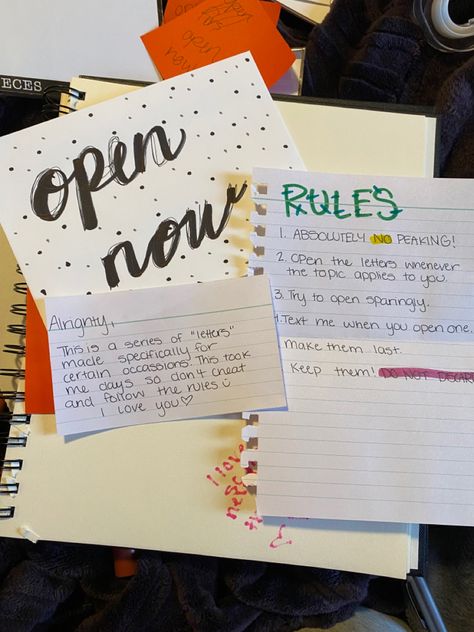 open
now
IECES
open
now
RULES
1. ABSOLUTELY NO PEAKING!
2. Open the letters whenever
the topic applies to you.
3. Try to open sparingly.
4. Text me when you open one.
make them last.
Keep them! DO NOT DISCARD
Alrighty,
This is a series of "letters"
made specifically for
certain occasions. This took
me days so don't cheat
and follow the rules
I love you
I love